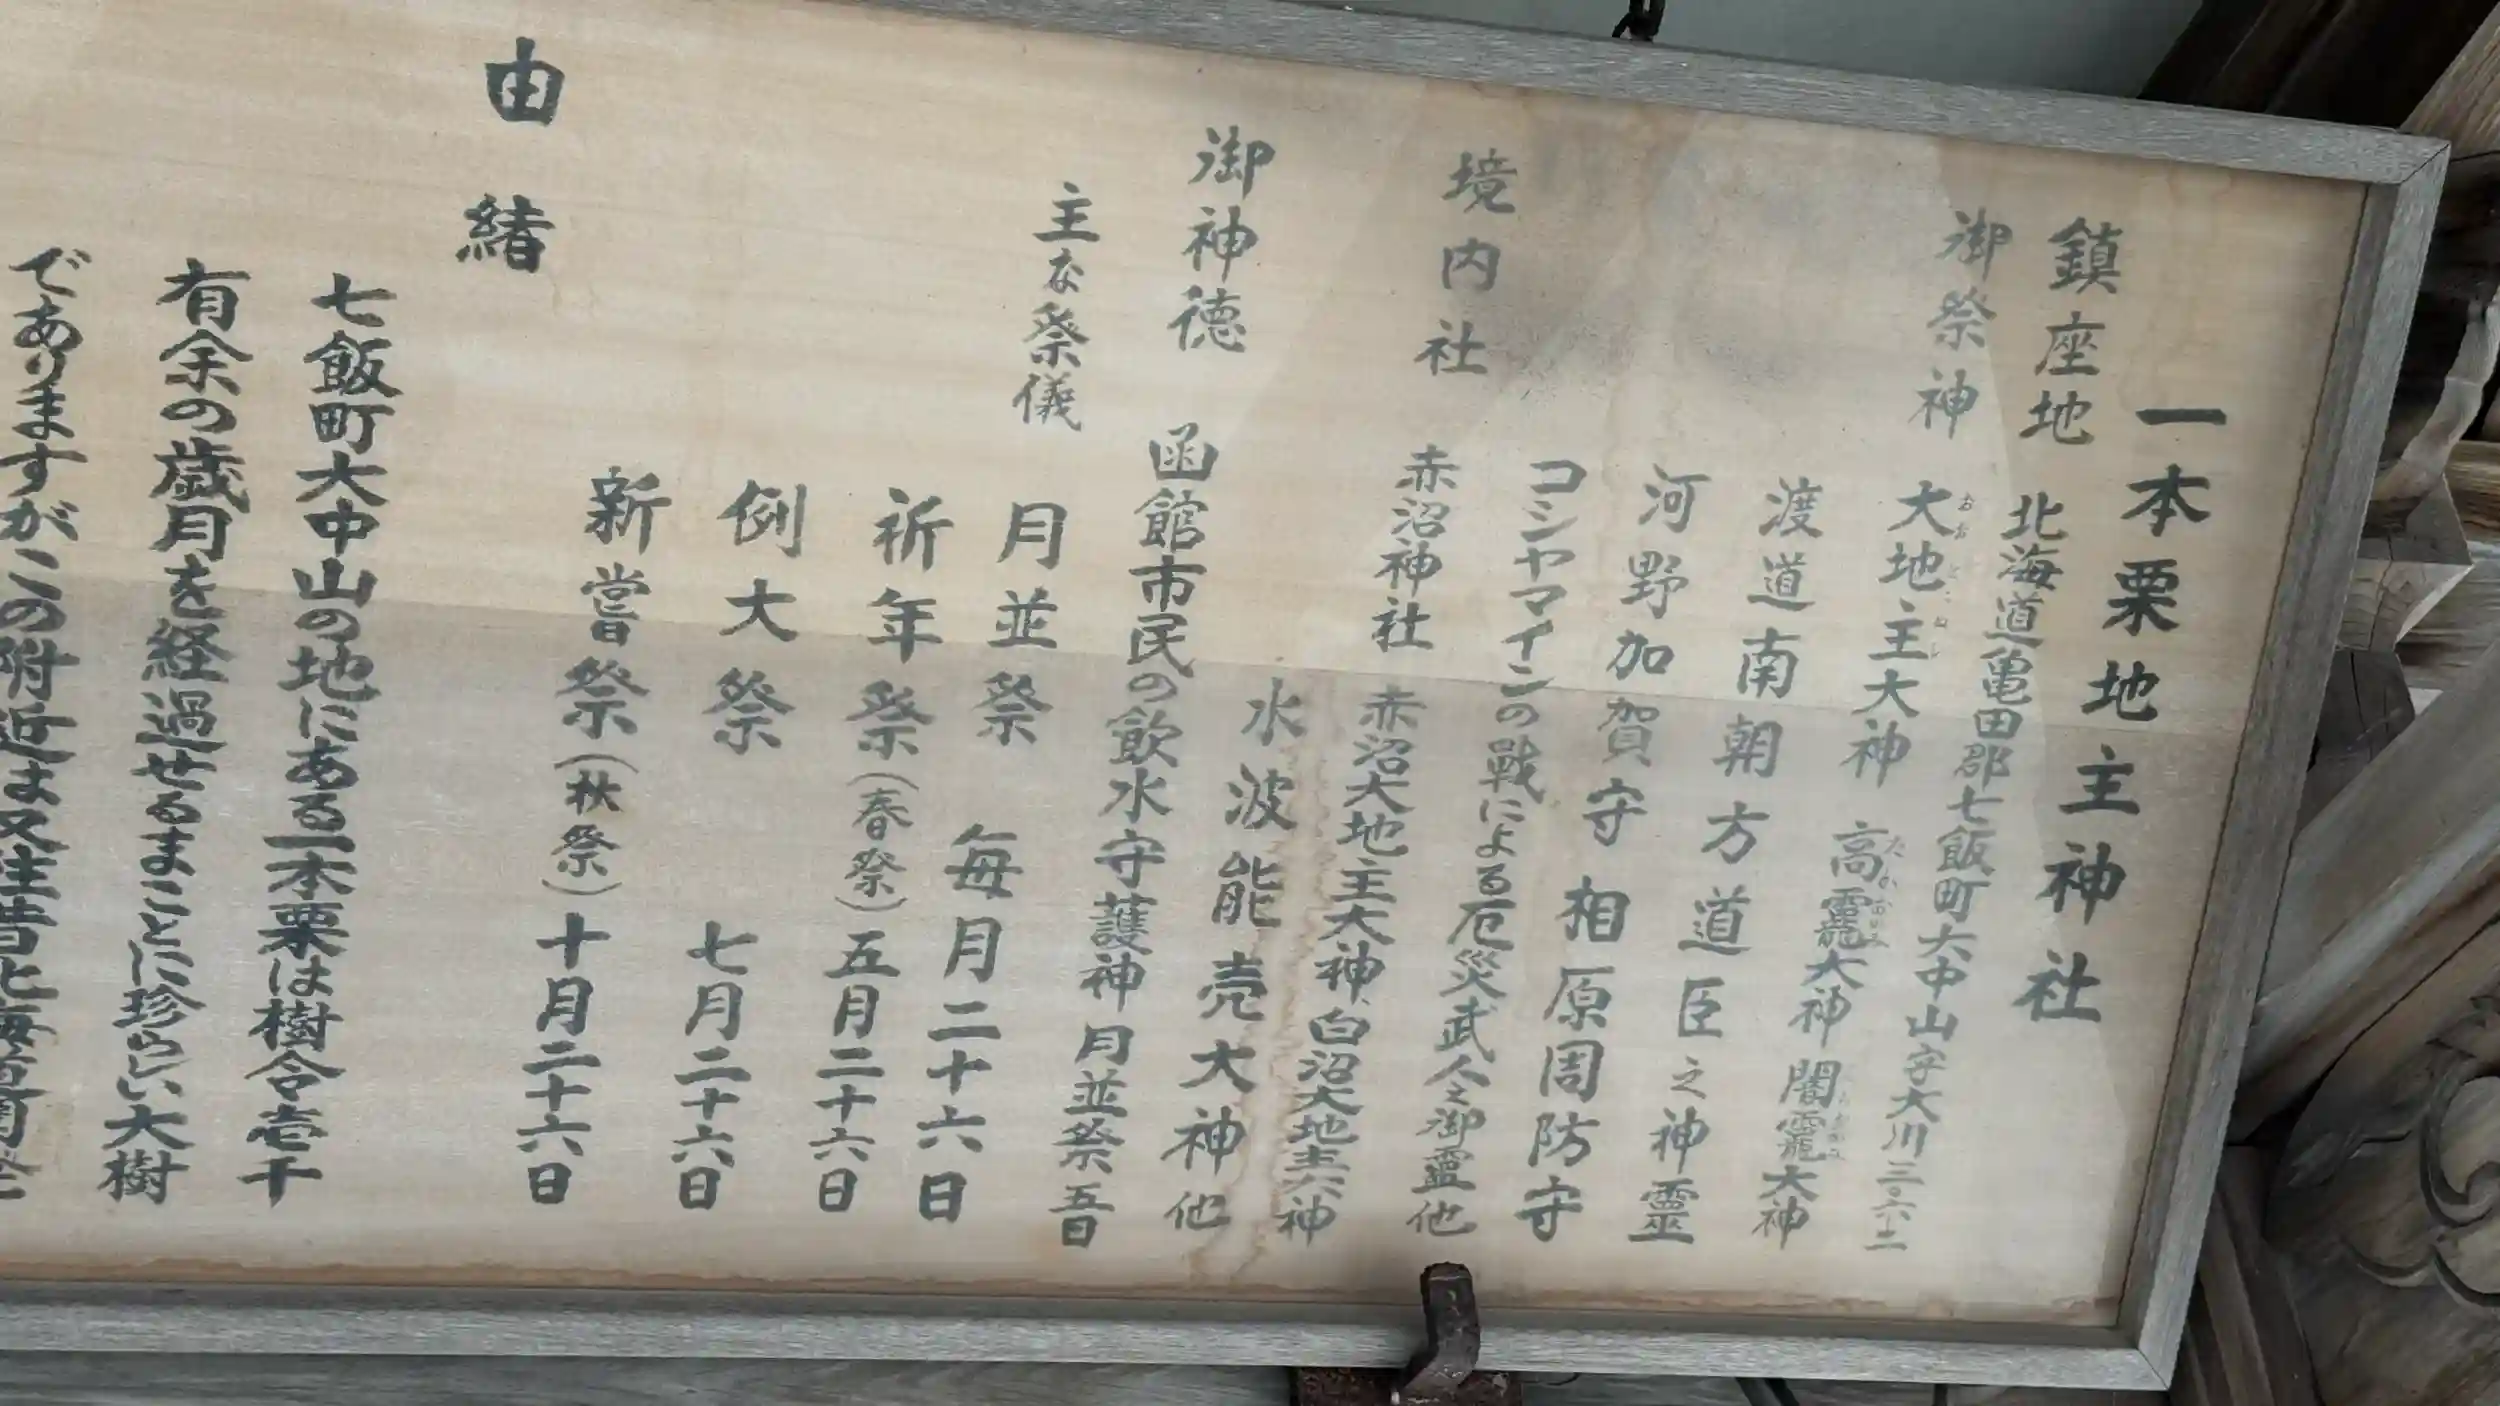 一本栗地主神社
鎮座地 北海道亀田郡七飯町大中山字大川三〇六ー二
御祭神 大地主大神 高龗大神 闇龗大神
渡道南朝方道臣之神霊
河野加賀守 相原周防守
コシヤマインの戦による厄災武人之御霊他
境内社 赤沼神社 赤沼大地主大神、白沼大地主大神
水波能売大神他
御神徳 函館市民の飲水守護神月並祭 五日
主な祭儀
月並祭 毎月二十六日
祈年祭(春祭)五月二十六日
例大祭 七月二十六日
新嘗祭(秋祭)十月二十六日
由緒
七飯町大中山の地にある一本栗は樹令壱千
有余の歳月を経過せるまことに珍らしい大樹
でありますがこの附近は又往昔北海道